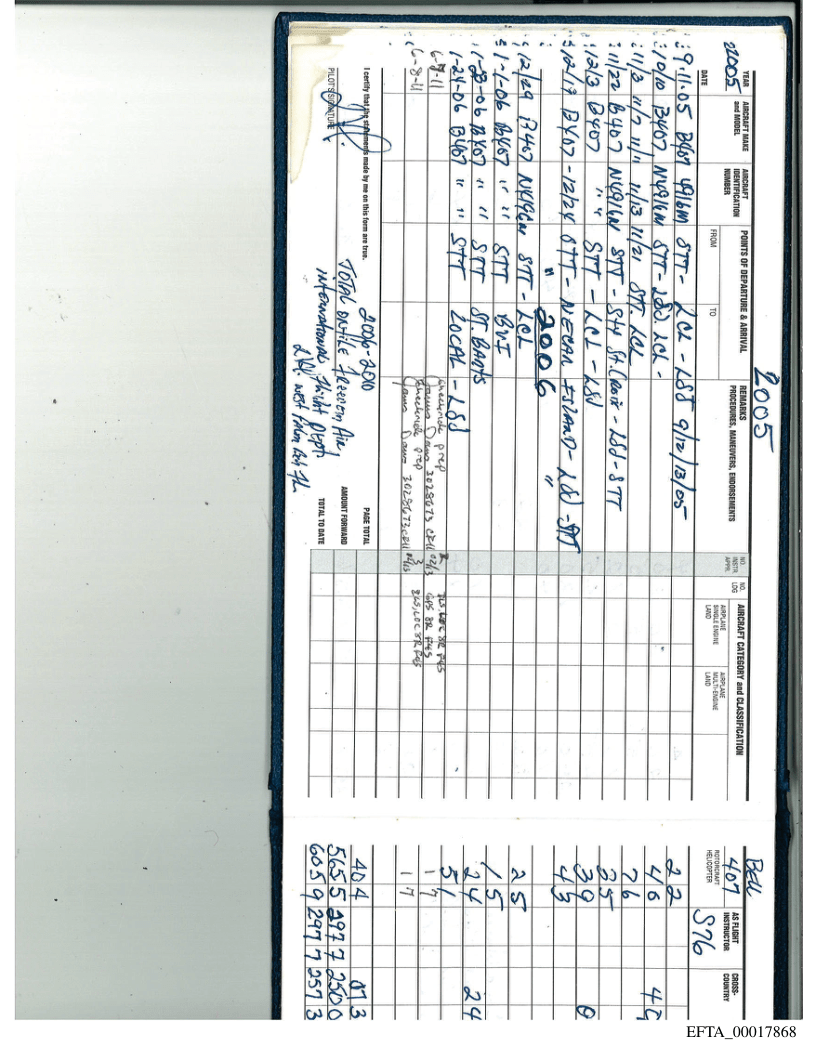 2005
Bell
YEAR
2005
AIRCRAFT MAKE and MODEL
AIRCRAFT IDENTIFICATION NUMBER
POINTS OF DEPARTURE & ARRIVAL
REMARKS
PROCEDURES, MANEUVERS, ENDORSEMENTS
NO. INSTR. APPR.
NO. LDG
AIRCRAFT CATEGORY and CLASSIFICATION
407
AS FLIGHT INSTRUCTOR
CROSS-COUNTRY
DATE
FROM
TO
AIRPLANE SINGLE-ENGINE LAND
AIRPLANE MULTI-ENGINE LAND
ROTORCRAFT HELICOPTER
S76
9.11.05 B407 491GM STT - LCL - LSJ 9/12/13/05 2 2
10/10 B407 N491GM STT - LSJ. LCL - 4 6
11/3 11/7 11/11 11/13 11/21 STT LCL 7 6
11/22 B407 N491GM STT - St. Croix - LSJ - STT 3 5
12/3 B407 " " STT - LCL - LSJ 3 9
12/13 B407 - 12/24 STT - NECAR ISLAND - LSJ - STT 4 3
" 2006 "
12/29 B407 N491GM STT - LCL 2 5
1-1-06 B407 " " STT BVI 1 5
06 B407 " " STT ST. BARTS 2 4 2 4
1-24-06 B407 " " STT LOCAL - LSJ 5 1
Checkride prep
6-7-11 3028673 CFII GPS 8R 1 7
Checkride prep
6-8-11 3028673 CFII ILS, LOC 8R 1 7
I certify that the statements made by me on this form are true.
PILOT'S SIGNATURE
2006-2010
TOTAL ON FILE Freedom Air,
International Flight Dept.
West Palm Bch Fl.
PAGE TOTAL 40 4 07 3
AMOUNT FORWARD 565 5 297 7 250 0
TOTAL TO DATE 605 9 297 7 257 3
EFTA_00017868